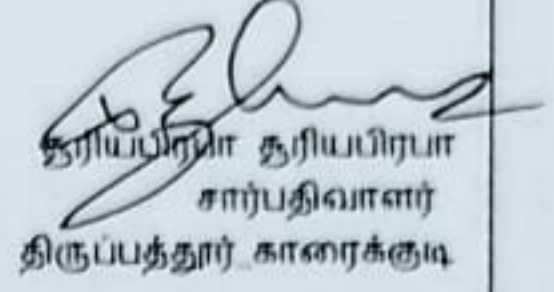 சூரியபிரபா சூரியபிரபா
சார்பதிவாளர்
திருப்பத்தூர் காரைக்குடி